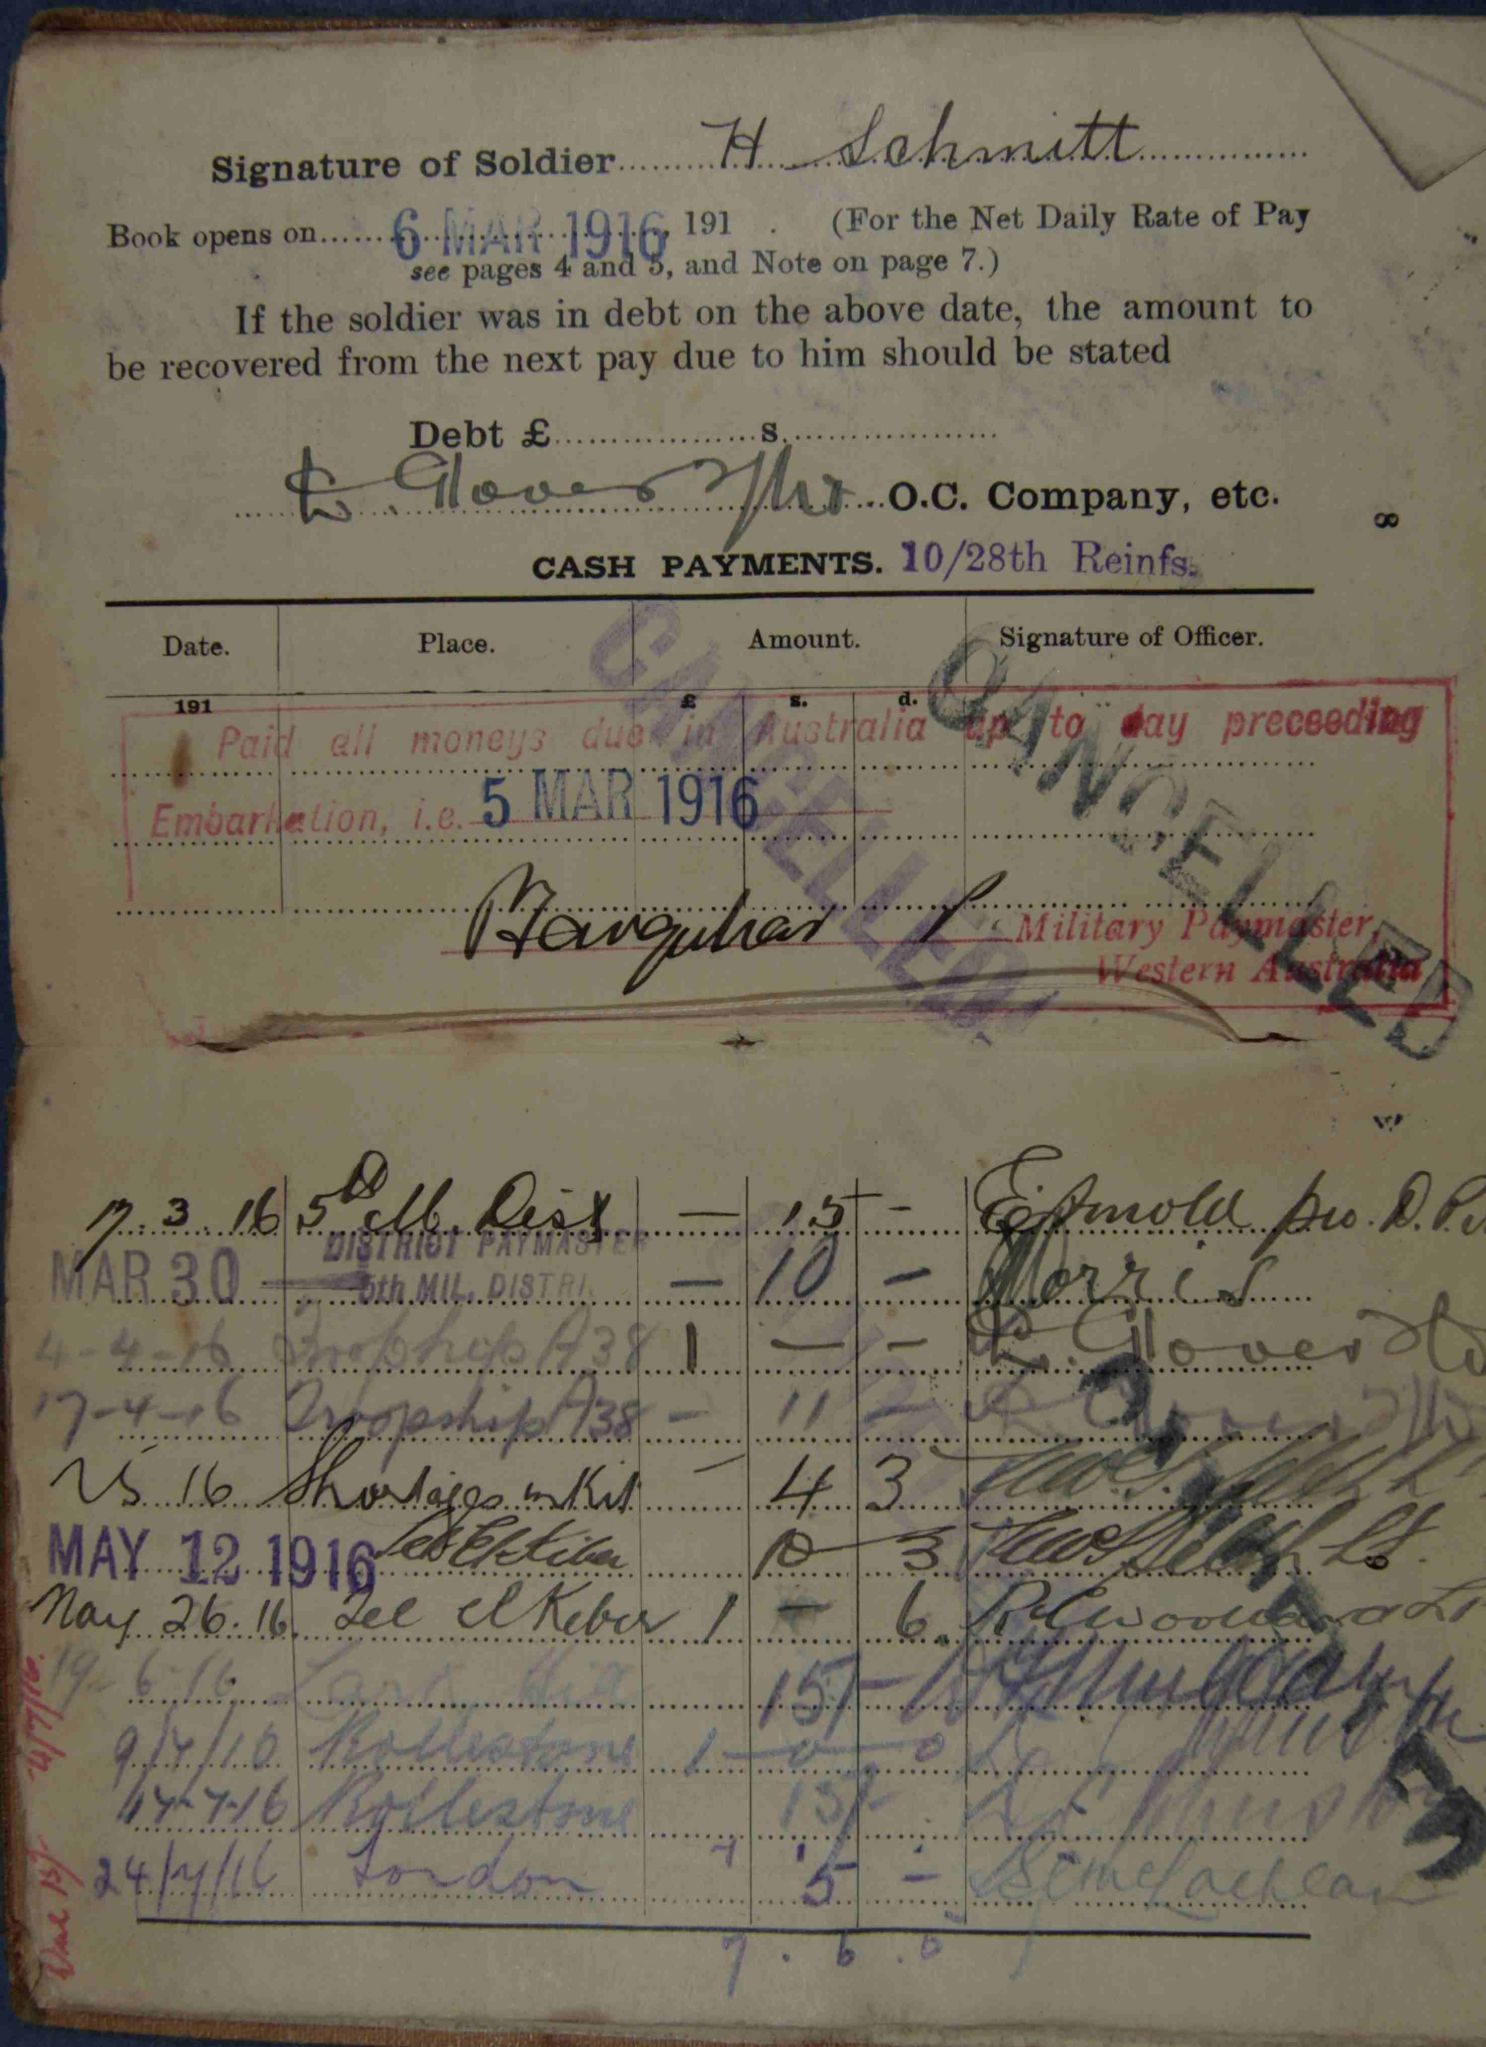 Signature of Soldier H Schmitt
Book opens on 6 MAR 1916 191 . (For the Net Daily Rate of Pay
see pages 4 and 5, and Note on page 7.)
If the soldier was in debt on the above date, the amount to
be recovered from the next pay due to him should be stated
Debt £ s.
L. Glover O.C. Company, etc.
8
CASH PAYMENTS. 10/28th Reinfs.
Date. Place. Amount. Signature of Officer.
191 £ s. d.
CANCELLED
CANCELLED
Paid all moneys due in Australia up to day preceeding
Embarkation, i.e. 5 MAR 1916
Farquhar
Military Paymaster,
Western Australia
17.3.16 5th M. Dist — 15 - Arnold pro. D.P.
DISTRICT PAYMASTER
MAR 30 5th MIL. DISTRI. — 10 — Morris
4-4-16 Troopship A38 1 — - L. Glover
17-4-16 Troopship A38 - 11 - L. Glover
16 Shortages in Kit - 4 3
MAY 12 1916 Tel El Kebir 10 3 Lt.
May 26.16. Tel El Kebir 1 - 6. Woodward Lt
19-6-16 15/-
9/7/16 Rollestone 1-0-0
17-7-16 Rollestone 15/-
24/7/16 London 5 - McLachlan
7 . 6 . 0
4/7/16